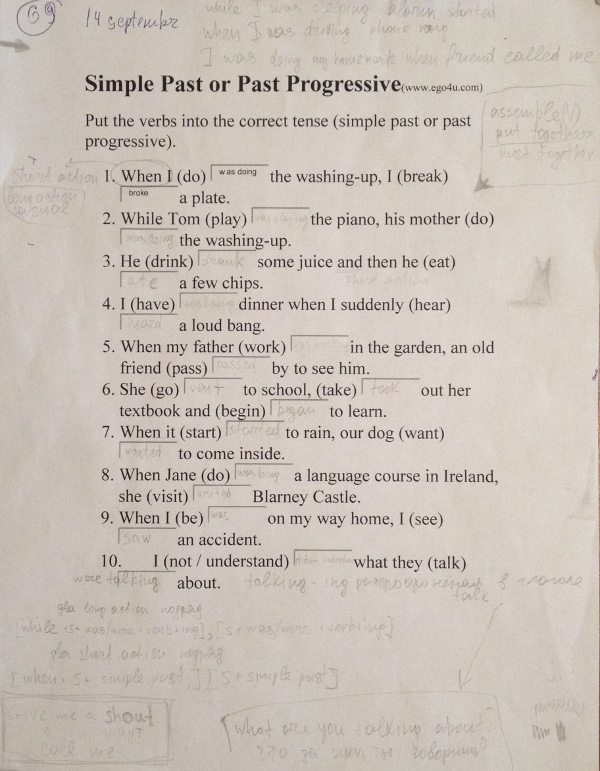 69
14 september
while I was sleeping alarm started
when I was driving phone rang
I was doing my homework when friend called me
Simple Past or Past Progressive(www.ego4u.com)
Put the verbs into the correct tense (simple past or past
progressive).
put together
meet together
short action
1. When I (do) was doing the washing-up, I (break)
broke a plate.
2. While Tom (play) was playing the piano, his mother (do)
was doing the washing-up.
3. He (drink) drank some juice and then he (eat)
ate a few chips.
short action
4. I (have) dinner when I suddenly (hear)
heard a loud bang.
5. When my father (work) was working in the garden, an old
friend (pass) passed by to see him.
6. She (go) went to school, (take) took out her
textbook and (begin) began to learn.
7. When it (start) started to rain, our dog (want)
wanted to come inside.
8. When Jane (do) was doing a language course in Ireland,
she (visit) visited Blarney Castle.
9. When I (be) was on my way home, I (see)
saw an accident.
10. I (not / understand) what they (talk)
were talking about.
talking - ing в глаголе
talk
два long action подряд
[while +s+ was/were +verb+ing], [s+was/were +verbing]
два short action подряд
[when + s + simple past,] [s + simple past]
give me a shout
call me
what are you talking about
что за ты говоришь?